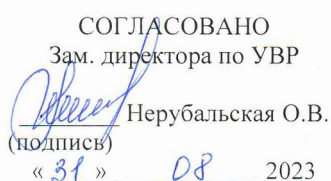 СОГЛАСОВАНО
Зам. директора по УВР
Нерубальская О.В.
(подпись)
« 31 » 08 2023